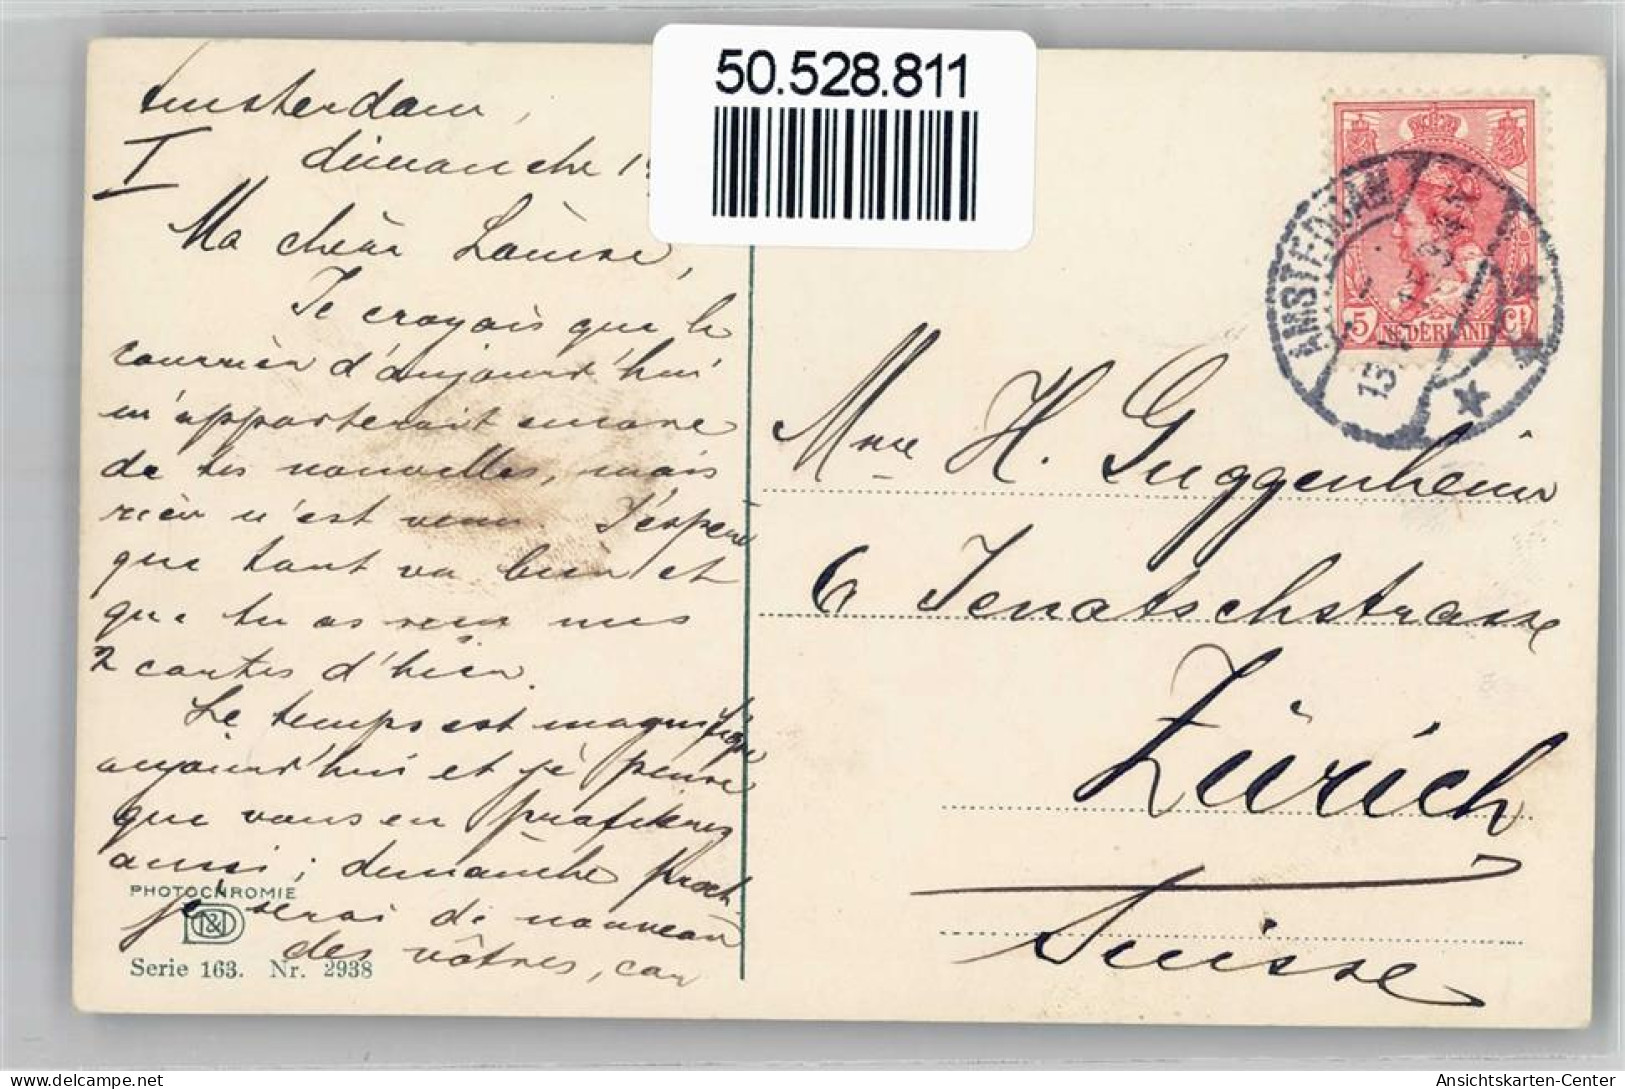 50.528.811
Amsterdam,
I dimanche 1
Ma chère Louise,
Je croyais que le
courrier d'aujourd'hui
m'apporterait encore
de tes nouvelles, mais
rien n'est venu. J'espère
que tout va bien et
que tu as reçu mes
2 cartes d'hier.
Le temps est magnifique
aujourd'hui et je pense
que vous en profiterez
aussi; dimanche proch.
je serai de nouveau
des vôtres, car
PHOTOCHROMIE
Serie 163. Nr. 2938
AMSTERDAM
13
5 NEDERLAND Ct
Mme H. Guggenheim
6 Jenatschstrasse
Zürich
Suisse
Ansichtskarten-Center